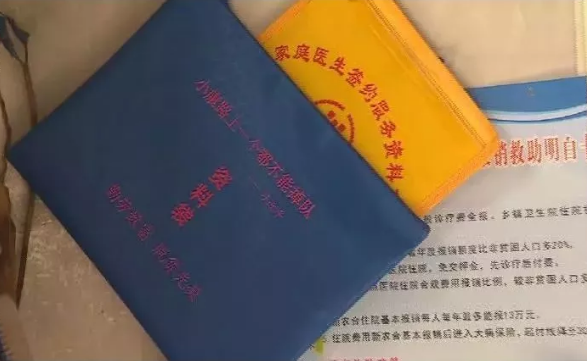 小康路上一个都不能掉队
资料袋
家庭医生签约服务资料
销救助明白卡
般诊疗费全报，乡镇卫生院住院
年度报销额度比非贫困人口多20%。
医院住院，免交押金，先诊疗后付费。
医院住院合规费用报销比例，较非贫困人口
新农合住院基本报销每人每年最多能报13万元。
住院费用新农合基本报销后进入大病保险，起付线降至30